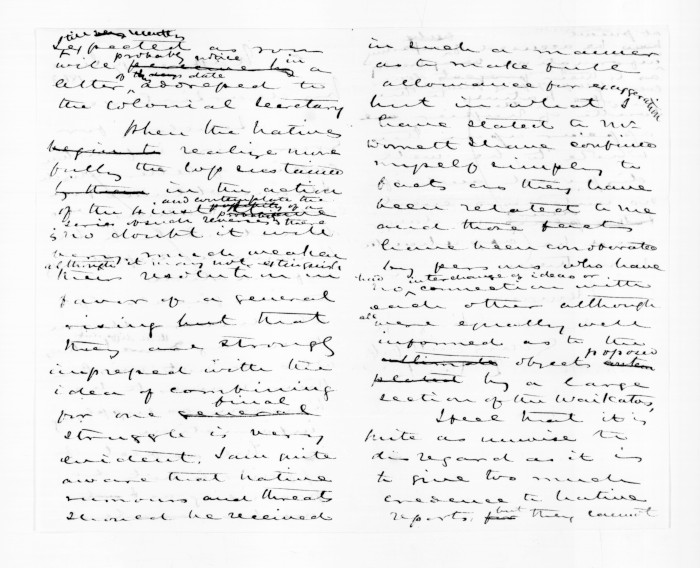 expected as soon
will probably notice in a
letter of this date addressed to
the Colonial Secretary
When the Natives
begin to realize more
fully the loss sustained
by them in the action
of the
series of such reverses there
is no doubt it will
much weaken
although it may not extinguish
their resolution in
favor of a general
rising but that
they are strongly
impressed with the
idea of combining
for one general final
struggle is very
evident. I am quite
aware that native
rumours and threats
should be received
in such a manner
as to make full
allowance for exaggeration
but in what I
have stated to Mr
Domett I have confined
myself simply to
facts as they have
been related to me
and those facts
have been corroborated
by persons who have
had no interchange of ideas or connection with
each other although
all were equally well
informed as to the
ultimate objects proposed
by a large
section of the Waikatos,
I feel that it is
quite as unwise to
disregard as it is
to give too much
credence to native
reports, for but they cannot